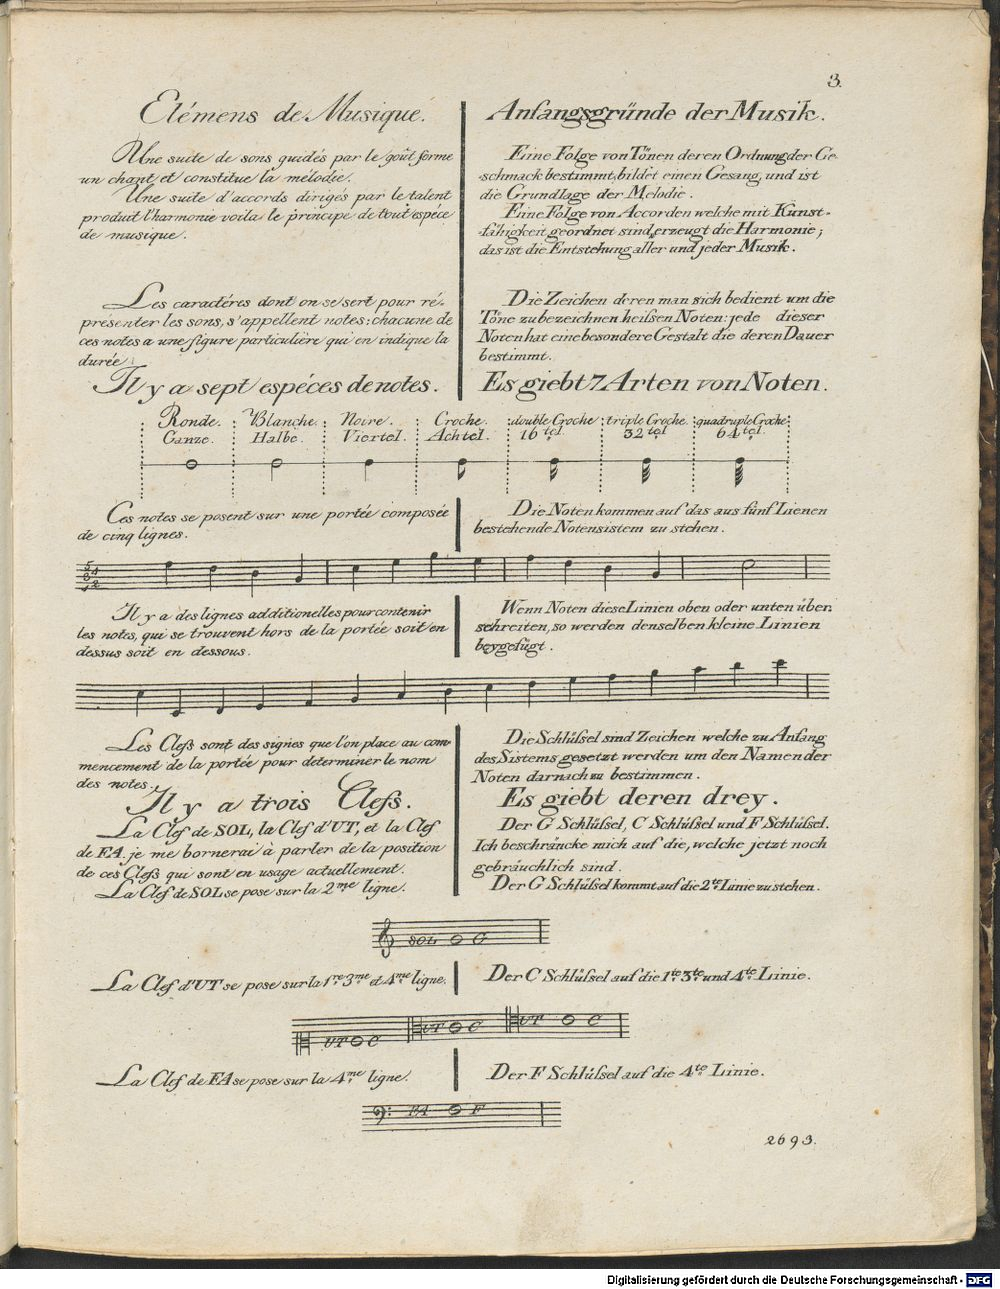 3.
Elémens de Musique.
Une suite de sons guidés par le goût forme
un chant et constitue la mélodie.
Une suite d'accords dirigés par le talent
produit l'harmonie voila le principe de tout espéce
de musique.
Les caractéres dont on se sert pour ré-
présenter les sons, s'appellent notes; chacune de
ces notes a une figure particulière qui en indique la
durée.
Il y a sept espéces de notes.
Anfangsgründe der Musik.
Eine Folge von Tönen deren Ordnung der Ge-
-schmack bestimmt, bildet einen Gesang, und ist
die Grundlage der Melodie.
Eine Folge von Accorden welche mit Kunst-
-fähigkeit geordnet sind, erzeugt die Harmonie;
das ist die Entstehung aller und jeder Musik.
Die Zeichen deren man sich bedient um die
Töne zu bezeichnen heiſsen Noten: jede dieser
Noten hat eine besondere Gestalt die deren Dauer
bestimmt.
Es giebt 7 Arten von Noten.
Ronde. Blanche. Noire. Croche. double Croche triple Croche. quadruple Croche
Ganze. Halbe. Viertel. Achtel. 16tel 32tel 64tel.
Ces notes se posent sur une portée composée
de cinq lignes.
Die Noten kommen auf das aus fünf Lienen
bestehende Notensistem zu stehen.
5 4 3 2 1
Il y a des lignes additionelles pour contenir
les notes, qui se trouvent hors de la portée soit en
dessus soit en dessous.
Wenn Noten diese Linien oben oder unten über-
schreiten, so werden denselben kleine Linien
beygefügt.
Les Clefs sont des signes que l'on place au com-
mencement de la portée pour determiner le nom
des notes.
Il y a trois Clefs.
La Clef de SOL, la Clef d'UT, et la Clef
de FA. je me bornerai à parler de la position
de ces Clefs qui sont en usage actuellement.
La Clef de SOL se pose sur la 2me ligne.
Die Schlüſsel sind Zeichen welche zu Anfang
des Sistems gesetzt werden um den Namen der
Noten darnach zu bestimmen.
Es giebt deren drey.
Der G Schlüſsel, C Schlüſsel und F Schlüſsel.
Ich beschräncke mich auf die, welche jetzt noch
gebräuchlich sind.
Der G Schlüſsel kommt auf die 2te Linie zu stehen.
SOL G
La Clef d'UT se pose sur la 1re 3me et 4me ligne.
Der C Schlüſsel auf die 1te 3te und 4te Linie.
UT C UT C UT C
La Clef de FA se pose sur la 4me ligne.
Der F Schlüſsel auf die 4te Linie.
FA F
2693.
Digitalisierung gefördert durch die Deutsche Forschungsgemeinschaft - DFG